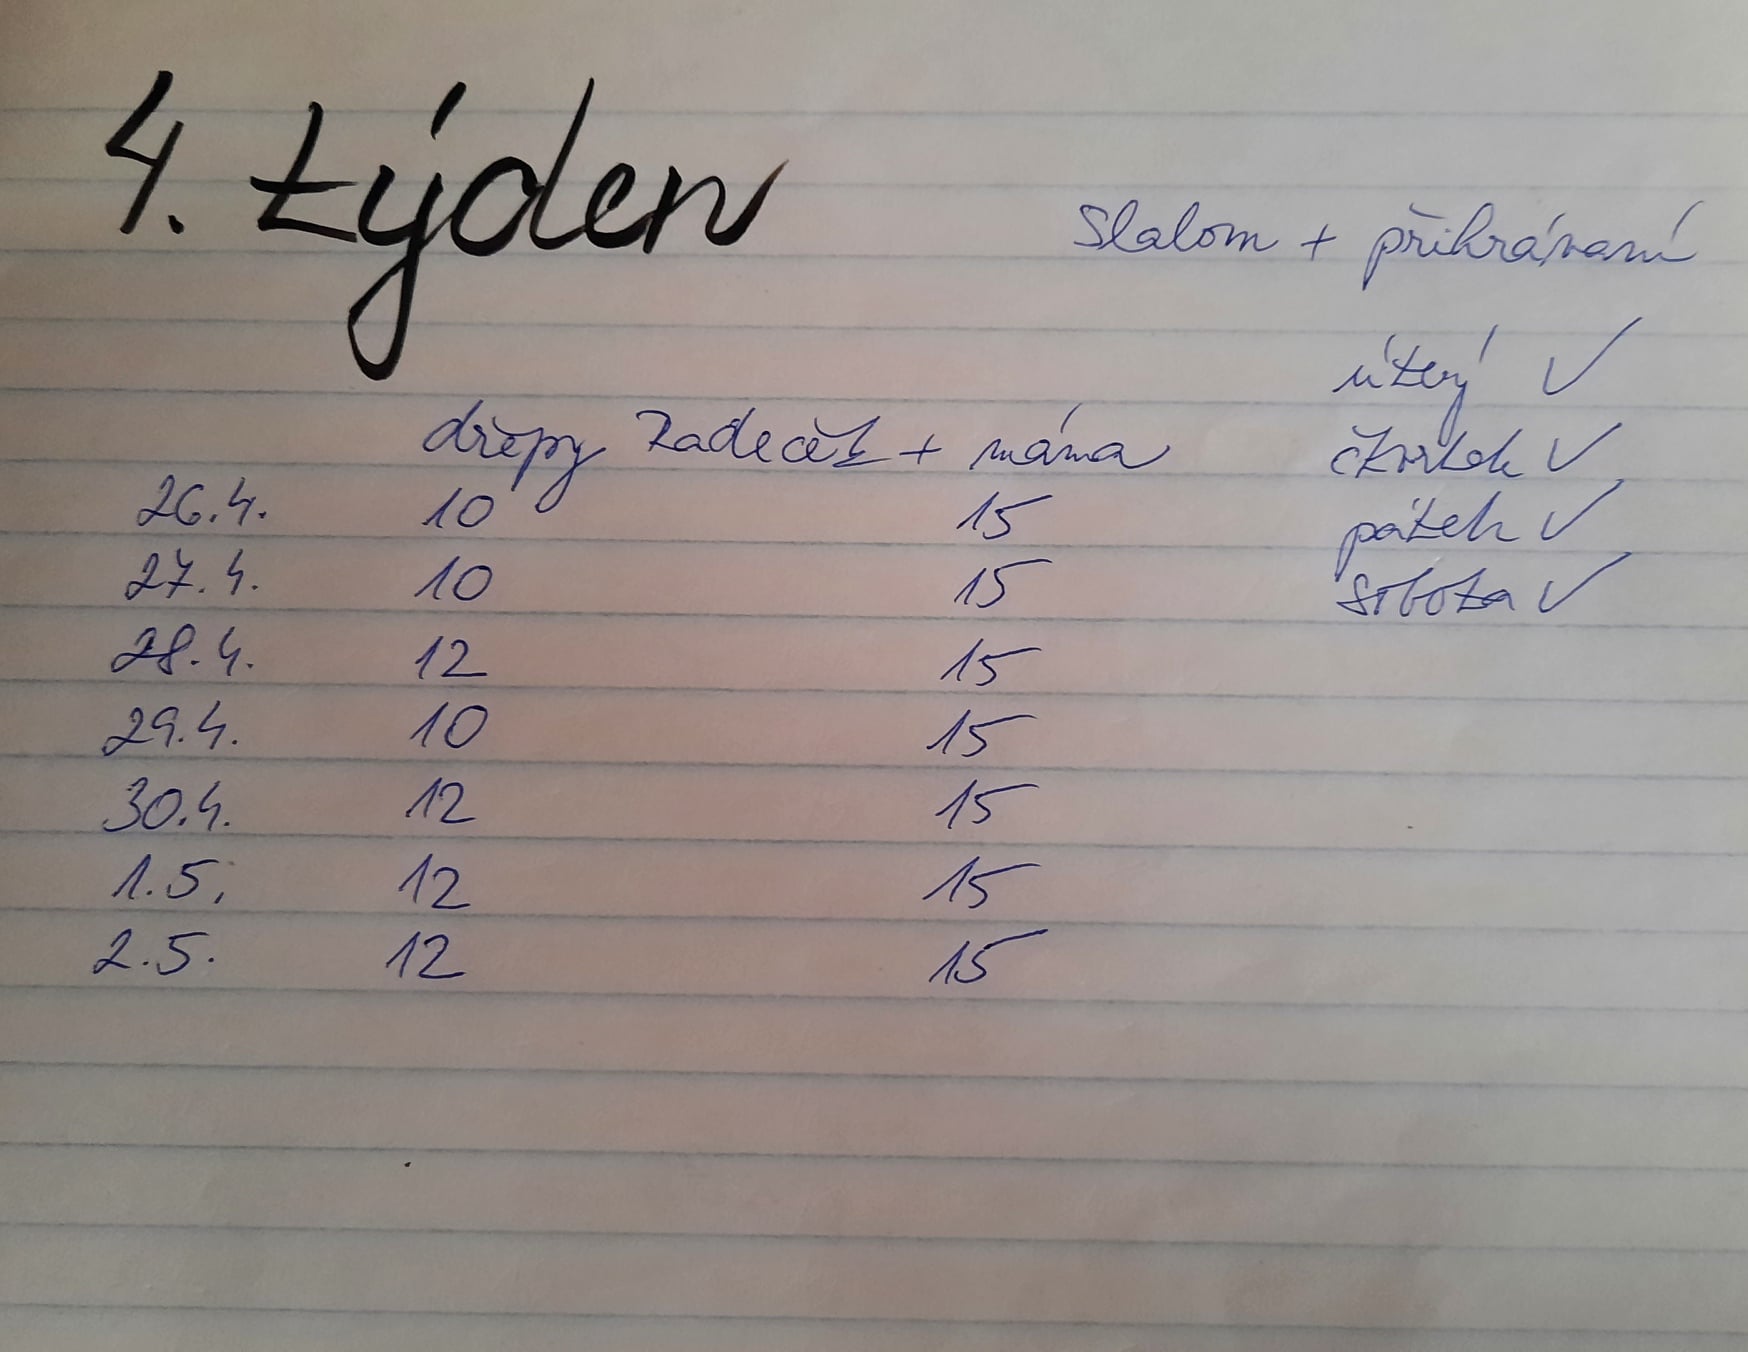 4. týden
Slalom + přihrávaní
úterý ✓
čtvrtek ✓
pátek ✓
sobota ✓
dřepy Radeček + máma
26.4. 10 15
27.4. 10 15
28.4. 12 15
29.4. 10 15
30.4. 12 15
1.5. 12 15
2.5. 12 15